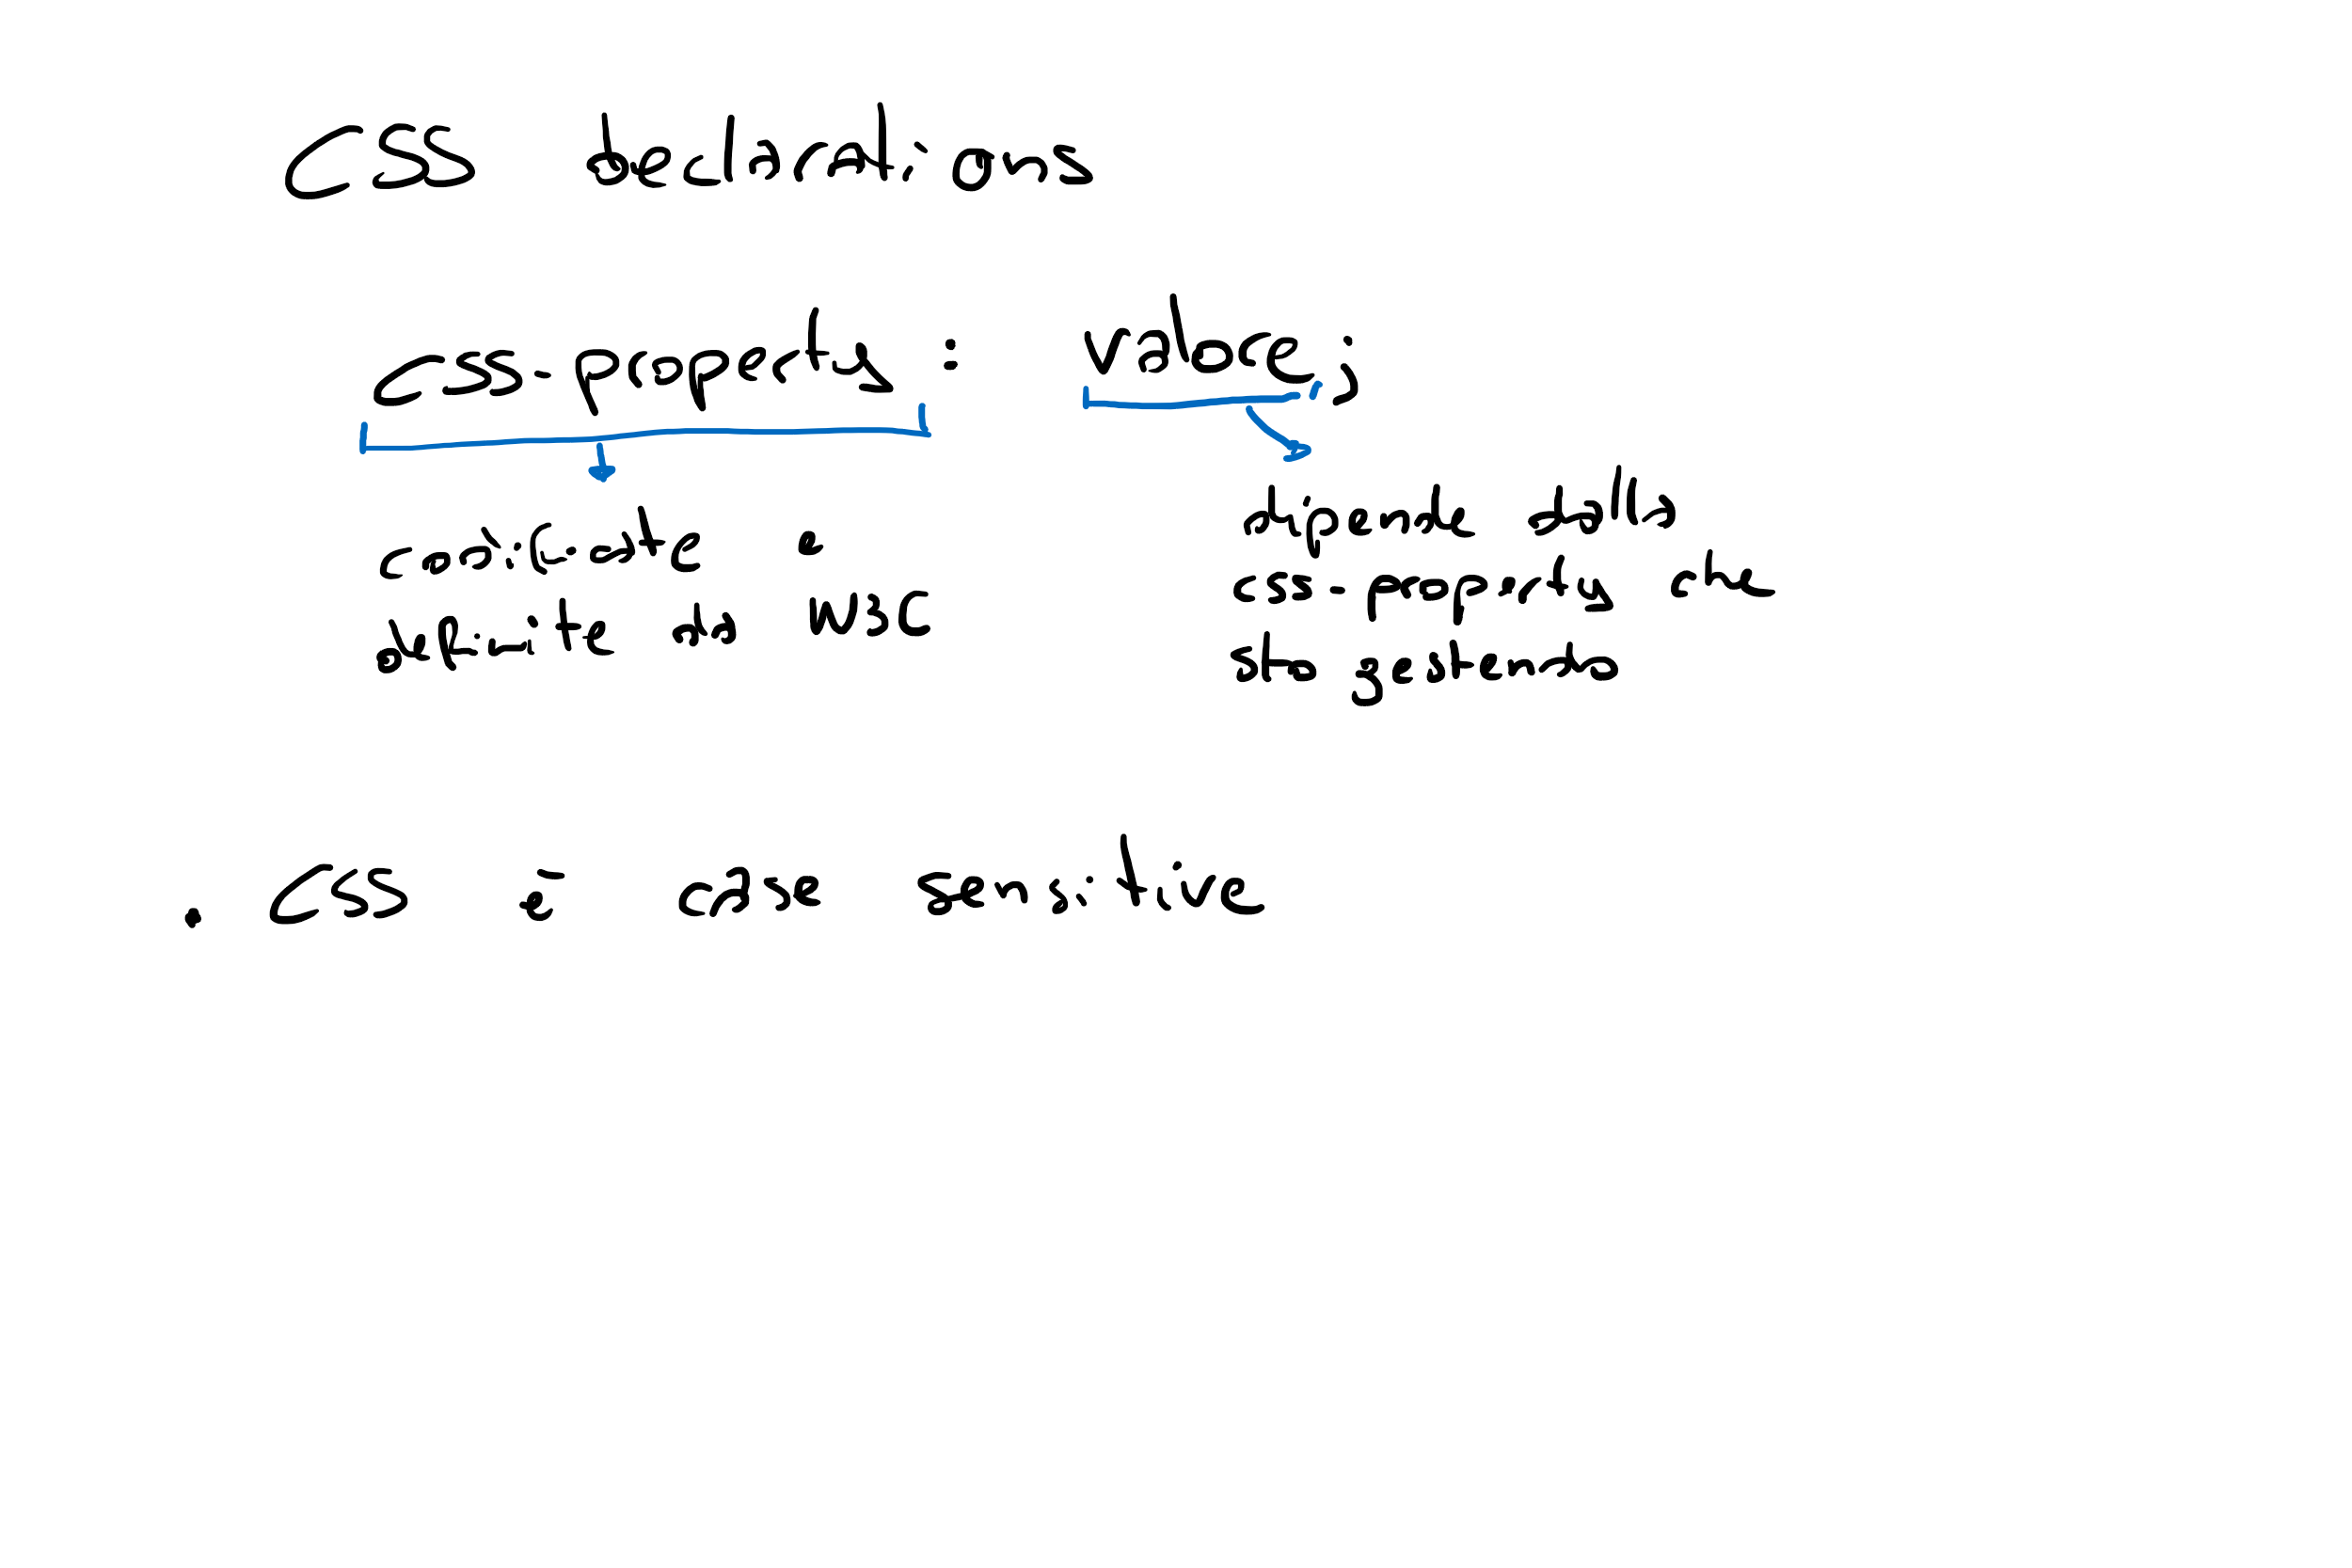 CSS declarations
css-property: valore;
codificate e
definite da W3C
dipende dalla
css-property che
sto gestendo
. CSS è case sensitive